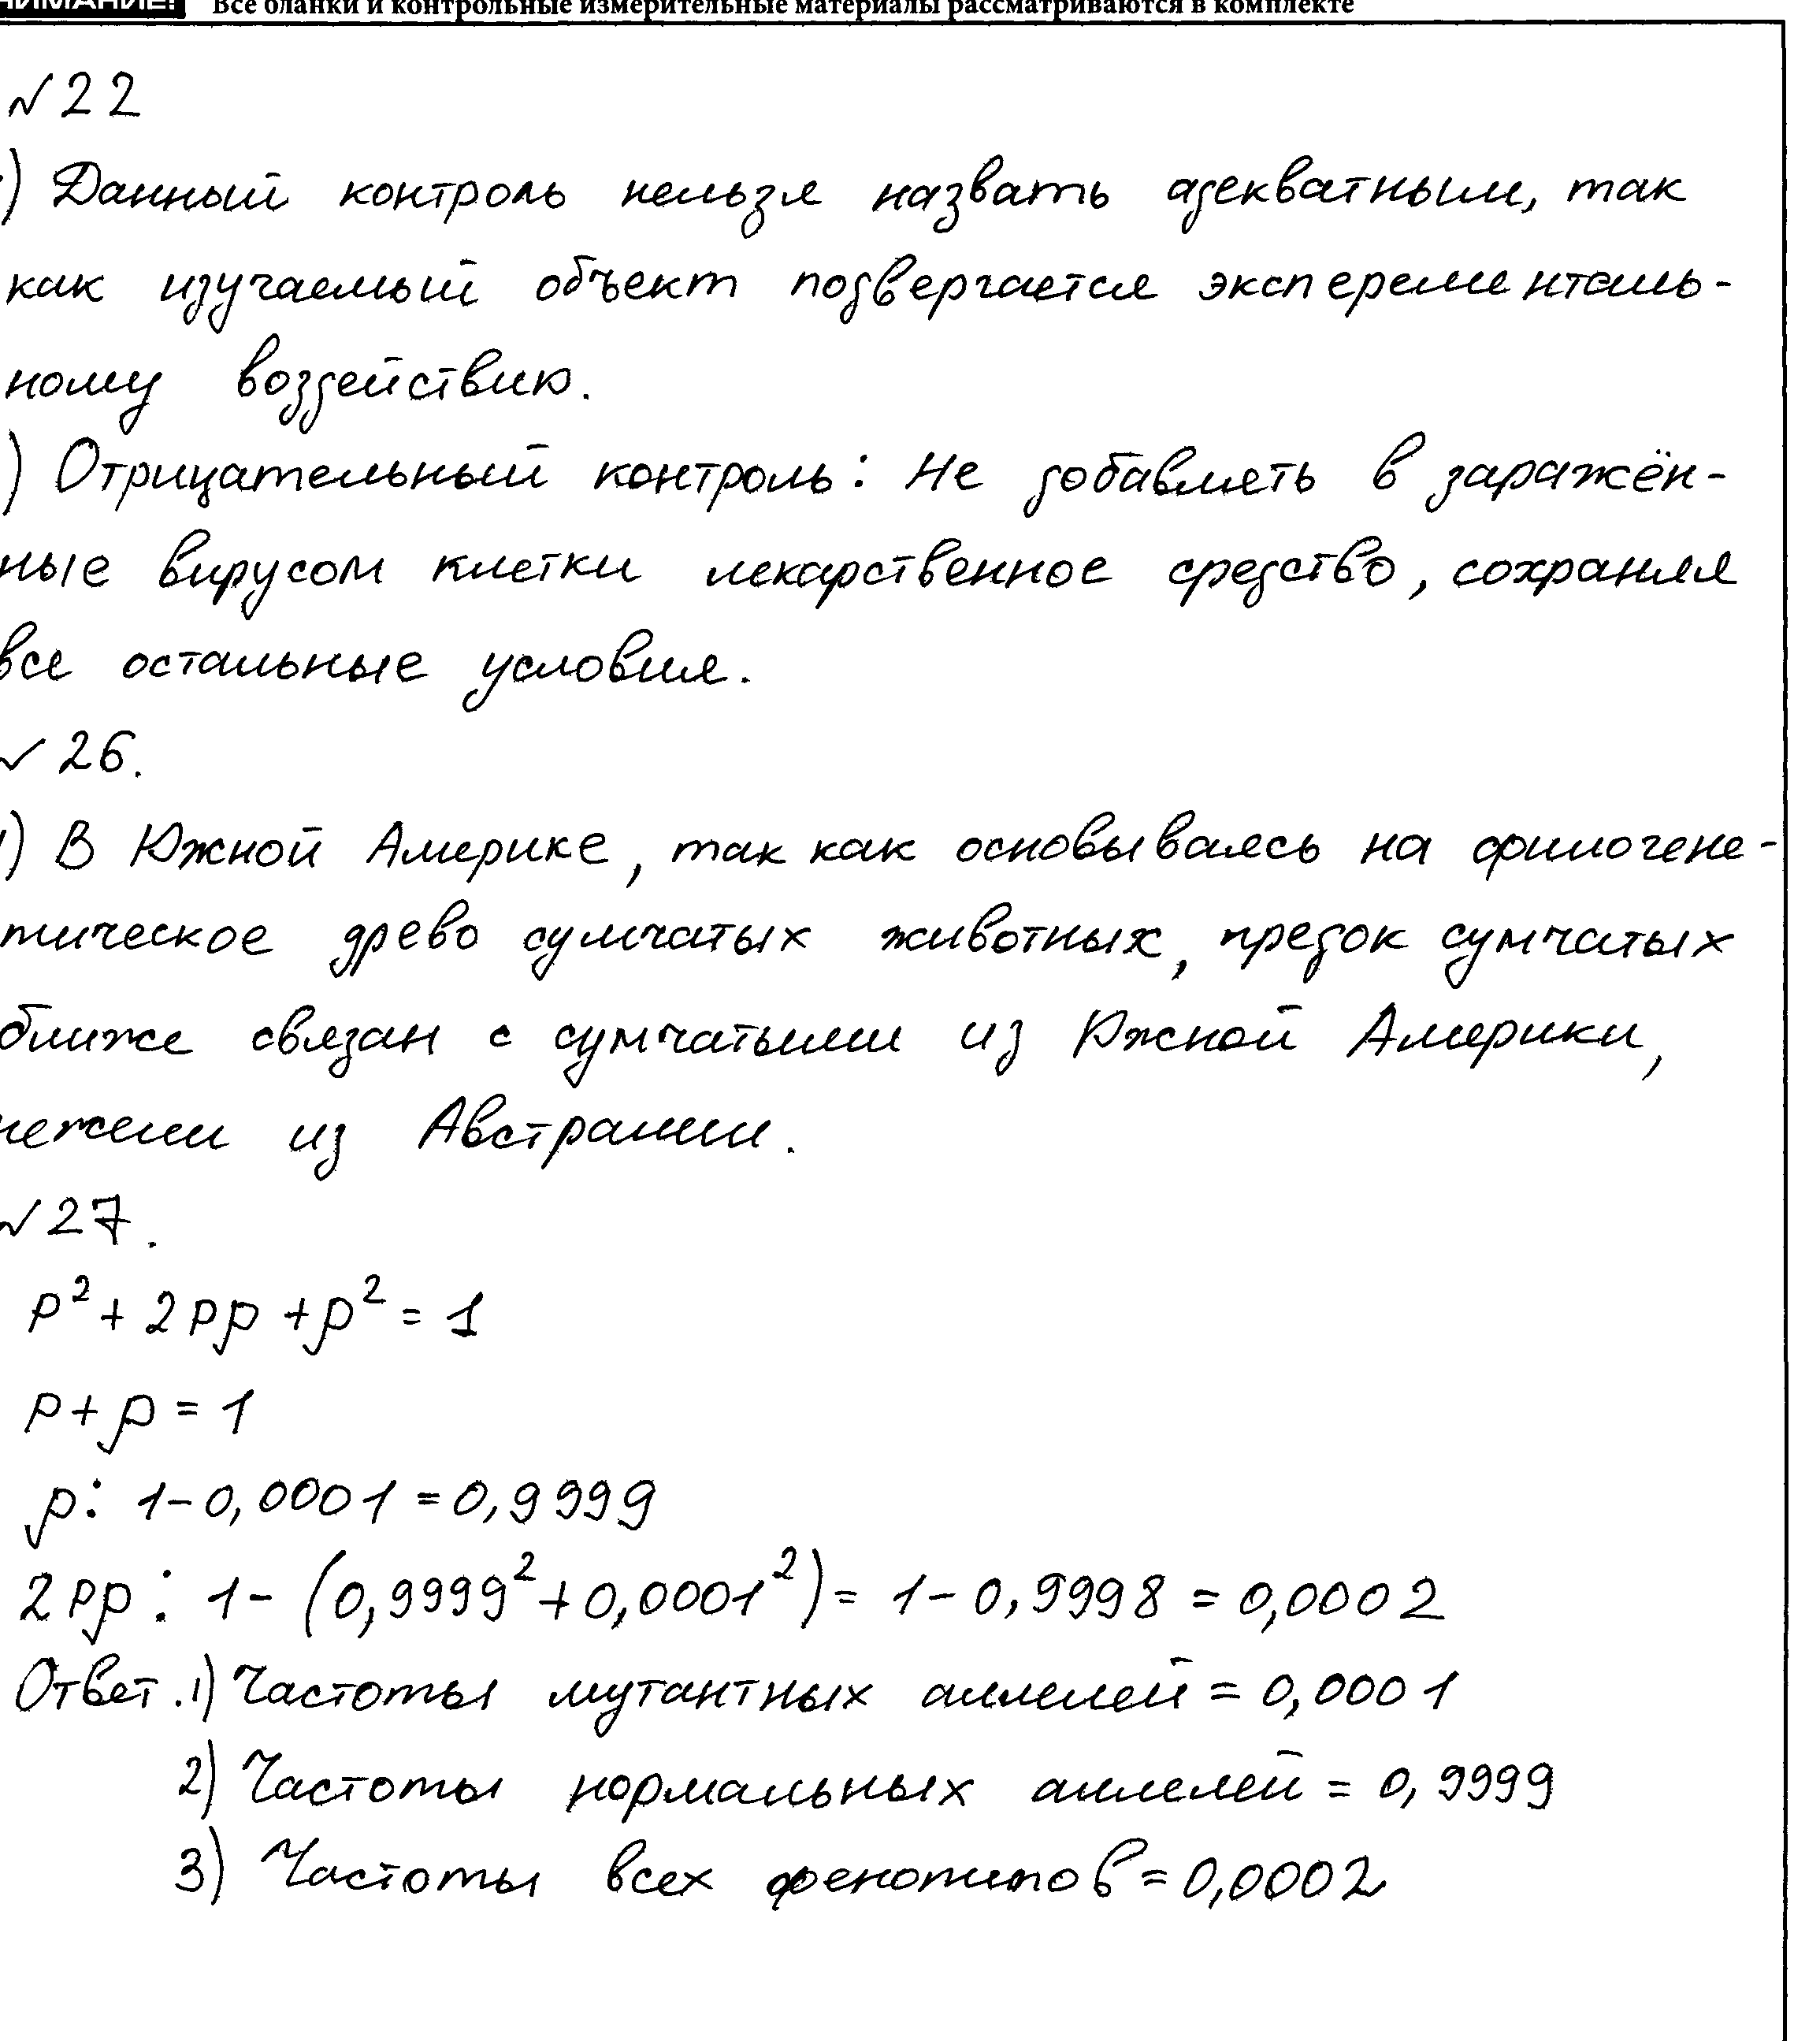 НИМАНИЕ! Все бланки и контрольные измерительные материалы рассматриваются в комплекте
№22
) Данный контроль нельзя назвать адекватным, так
как изучаемый объект подвергается эксперементаль-
ному воздействию.
) Отрицательный контроль: Не добавлять в заражён-
ные вирусом клетки лекарственное средство, сохраняя
все остальные условия.
№26.
1) В Южной Америке, так как основываясь на филогене-
тическое древо сумчатых животных, предок сумчатых
ближе связан с сумчатыми из Южной Америки,
нежели из Австралии.
№27.
p² + 2pp + p² = 1
p + p = 1
p: 1 - 0,0001 = 0,9999
2pp: 1 - (0,9999² + 0,0001²) = 1 - 0,9998 = 0,0002
Ответ. 1) Частоты мутантных аллелей = 0,0001
2) Частоты нормальных аллелей = 0,9999
3) Частоты всех фенотипов = 0,0002